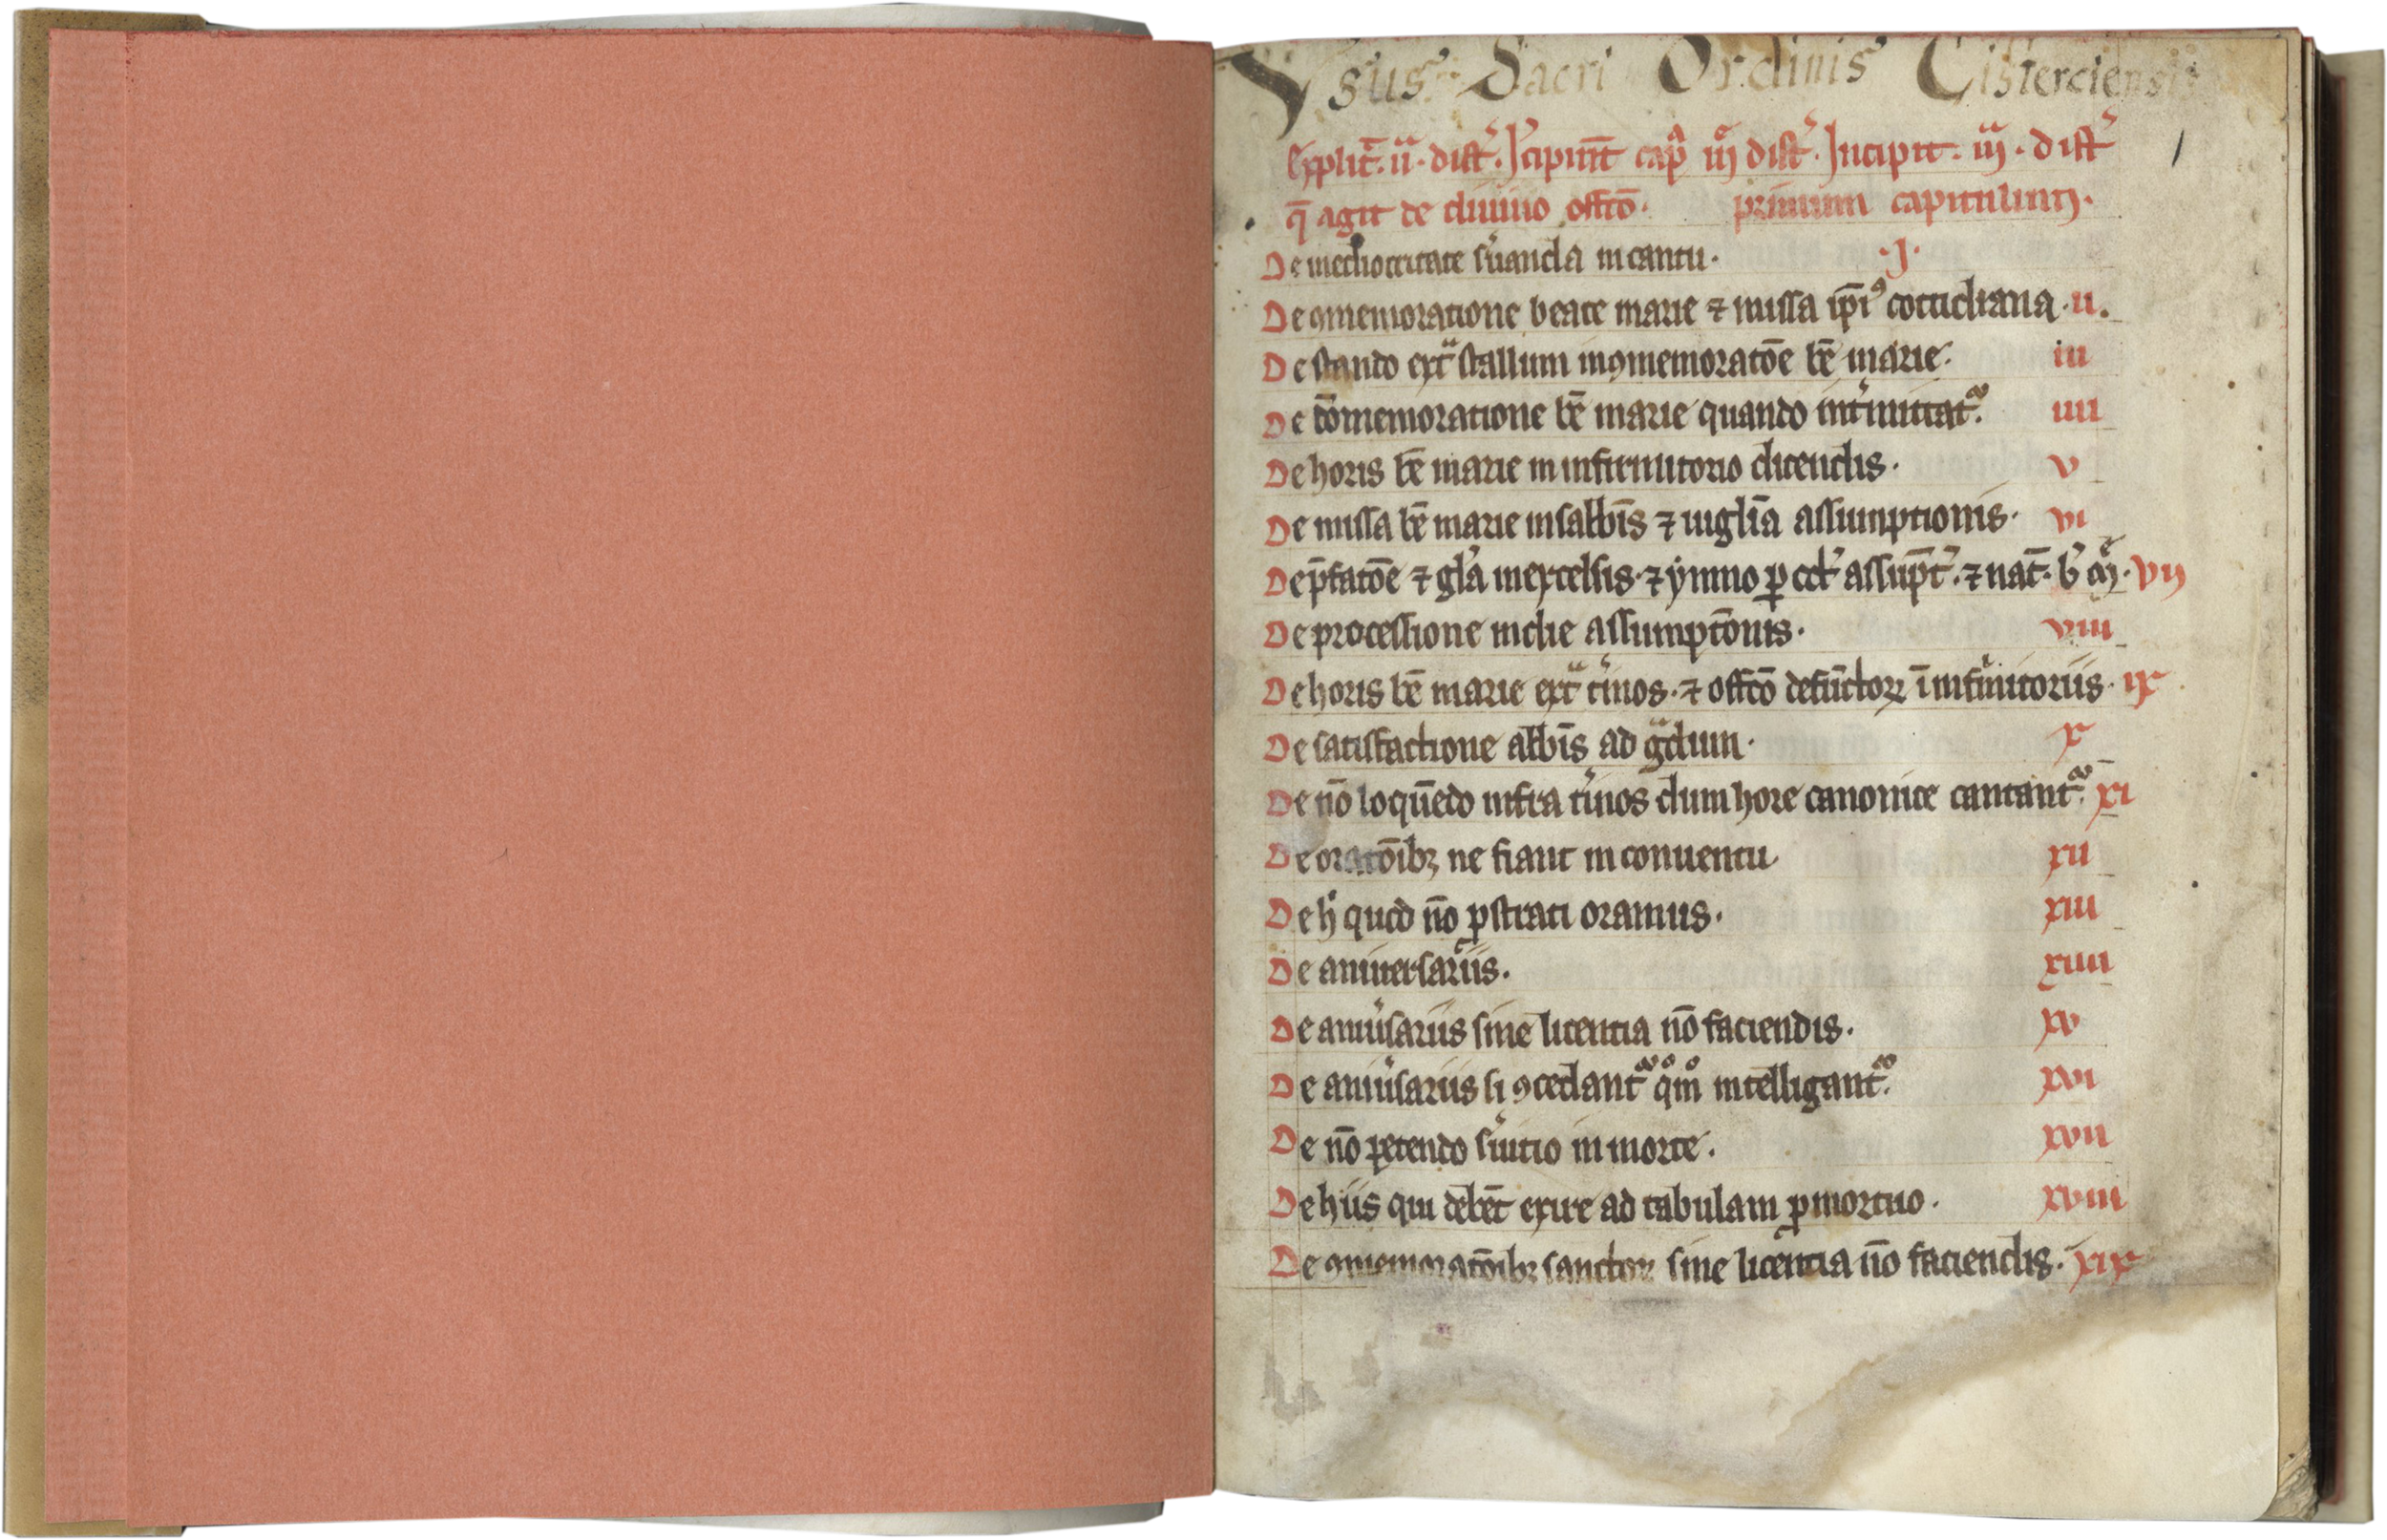 Usus Sacri Ordinis Cisterciensis
Explic̄. ii. dist̄. Jcipiūt cap̄ iij dist̄. Incipit. iij. dist̄
q̄ agit de diuino offīo. primum capitulum.
De mediocritate ẜuanda in cantu. .j.
De ꝯmemoratione beate marie ⁊ missa ip̄iꝰ cottidiana. ii.
De stando ext̄ stallum in ꝯmemoratōe bē marie. iii
De cōmemoratione bē marie quando int̄mittat᷑. iiii
De horis bē marie in infirmitorio dicendis. v
De missa bē marie in sabb̄is ⁊ uigl̄ia assumptionis. vi
De p̄fatōe ⁊ gl̄a in excelsis. ⁊ ymno ꝑ oct̄ assūpt̄. ⁊ nat̄. b̄ m̄. vij
De processione in die assumptōnis. viii
De horis bē marie ext̄ t̄minos. ⁊ offīo defūctoꝝ ī infirmitoriis. ix
De satisfactione abb̄is ad gͣdum. x
De nō loquēdo infra t̄minos dum hore canonice cantant᷑. xi
De oratōibꝫ ne fiant in conuentu. xii
De h̄ quod nō ꝓstrati oramus. xiii
De aniuersariis. xiiii
De aniūsariis sine licentia nō faciendis. xv
De aniūsariis si ꝯcedant᷑ qͦmͦ intelligant᷑. xvi
De nō petendo ẜuitio in morte. xvii
De hiis qui debēt exire ad tabulam ꝓ mortuo. xviii
De ꝯmemoratōibꝫ sanctoꝝ sine licentia nō faciendis. xix